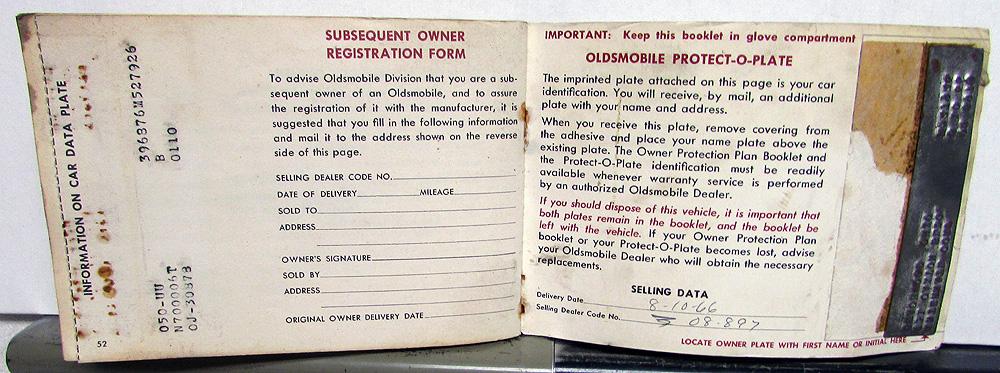 INFORMATION ON CAR DATA PLATE
396876M527926
B
01110
050-UU
N700006T
OJ-30873
52
SUBSEQUENT OWNER
REGISTRATION FORM
To advise Oldsmobile Division that you are a sub-
sequent owner of an Oldsmobile, and to assure
the registration of it with the manufacturer, it is
suggested that you fill in the following information
and mail it to the address shown on the reverse
side of this page.
SELLING DEALER CODE NO.
DATE OF DELIVERY MILEAGE
SOLD TO
ADDRESS
OWNER'S SIGNATURE
SOLD BY
ADDRESS
ORIGINAL OWNER DELIVERY DATE
IMPORTANT: Keep this booklet in glove compartment
OLDSMOBILE PROTECT-O-PLATE
The imprinted plate attached on this page is your car
identification. You will receive, by mail, an additional
plate with your name and address.
When you receive this plate, remove covering from
the adhesive and place your name plate above the
existing plate. The Owner Protection Plan Booklet and
the Protect-O-Plate identification must be readily
available whenever warranty service is performed
by an authorized Oldsmobile Dealer.
If you should dispose of this vehicle, it is important that
both plates remain in the booklet, and the booklet be
left with the vehicle. If your Owner Protection Plan
booklet or your Protect-O-Plate becomes lost, advise
your Oldsmobile Dealer who will obtain the necessary
replacements.
SELLING DATA
Delivery Date 8-10-66
Selling Dealer Code No. 08-897
LOCATE OWNER PLATE WITH FIRST NAME OR INITIAL HERE